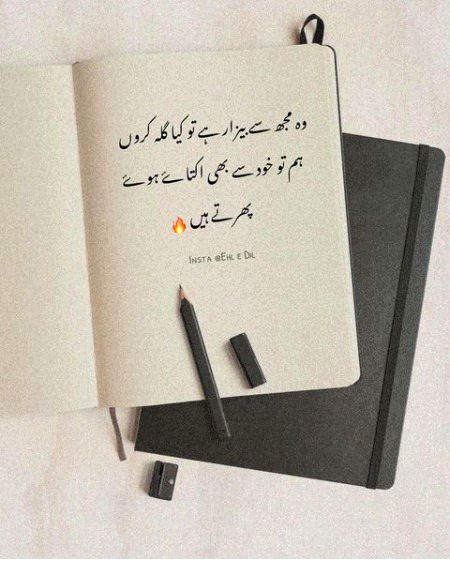 وہ مجھ سے بیزار ہے تو کیا گلہ کروں
ہم تو خود سے بھی اکتائے ہوئے
پھرتے ہیں🔥
Insta @Ehl e Dil